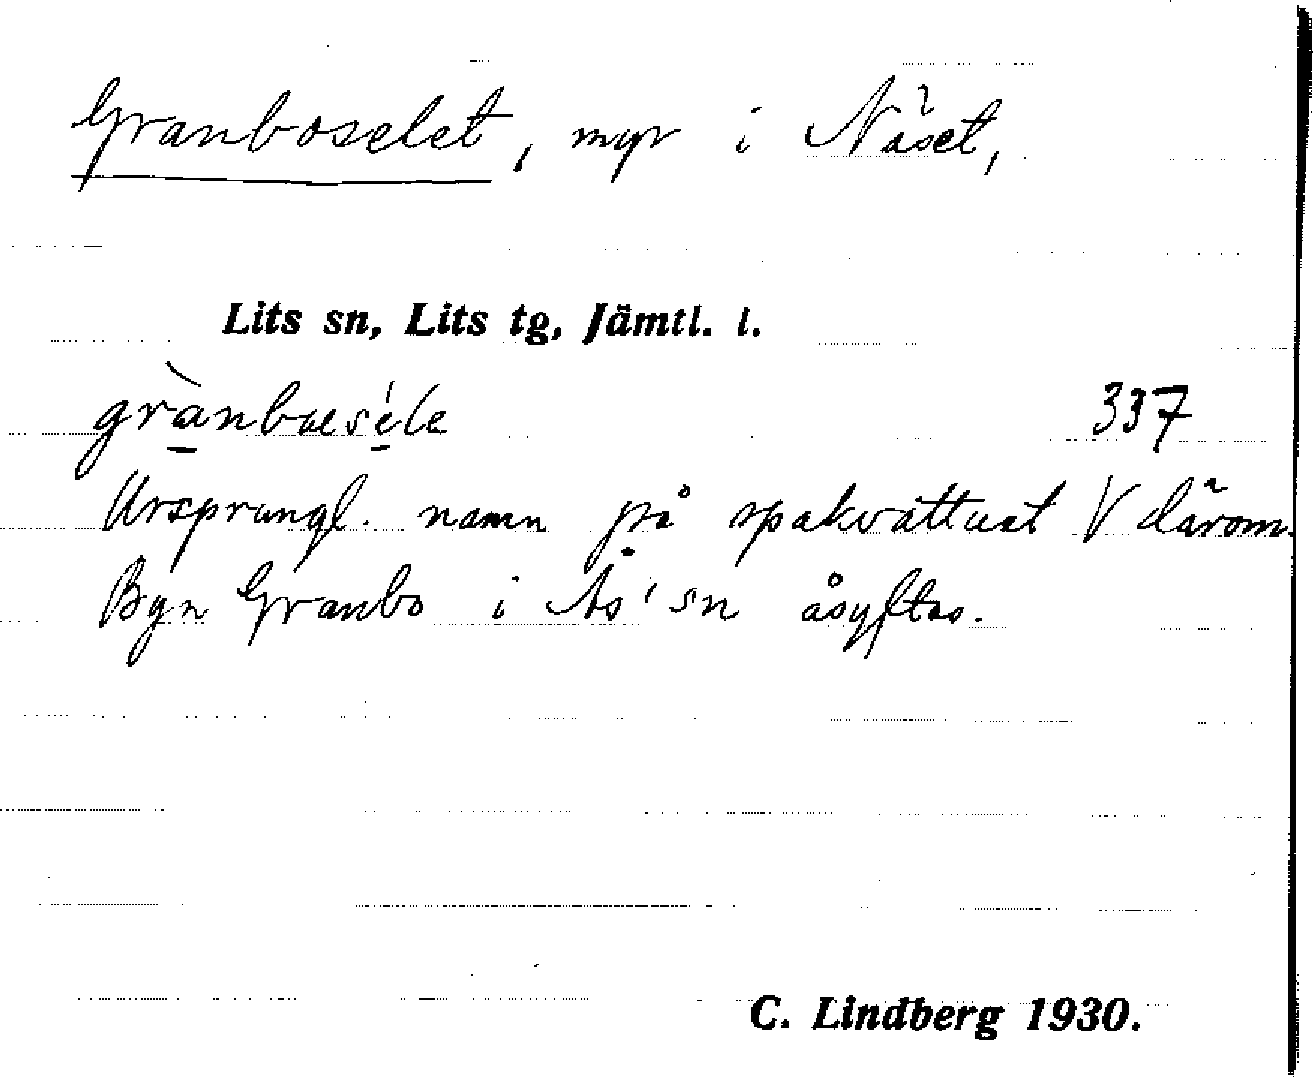 Granboselet, myr i Näset,
Lits sn, Lits tg, Jämtl. l.
grànbueséle 337
Ursprungl. namn på spakvattnet V därom.
Byn Granbo i Ås sn åsyftas.
C. Lindberg 1930.